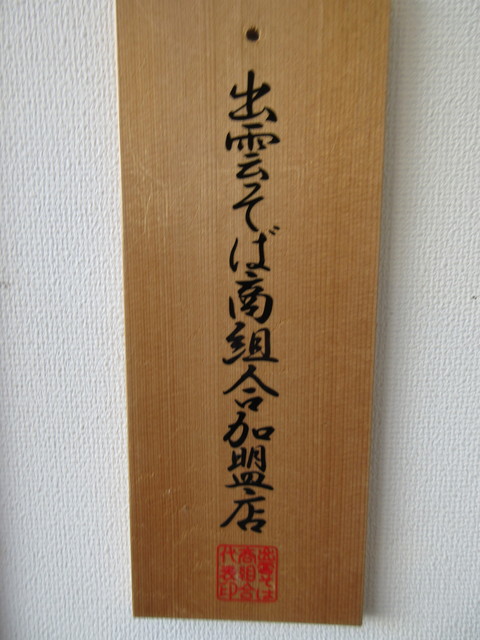 出雲そば商組合加盟店
出雲そば
商組合
代表印